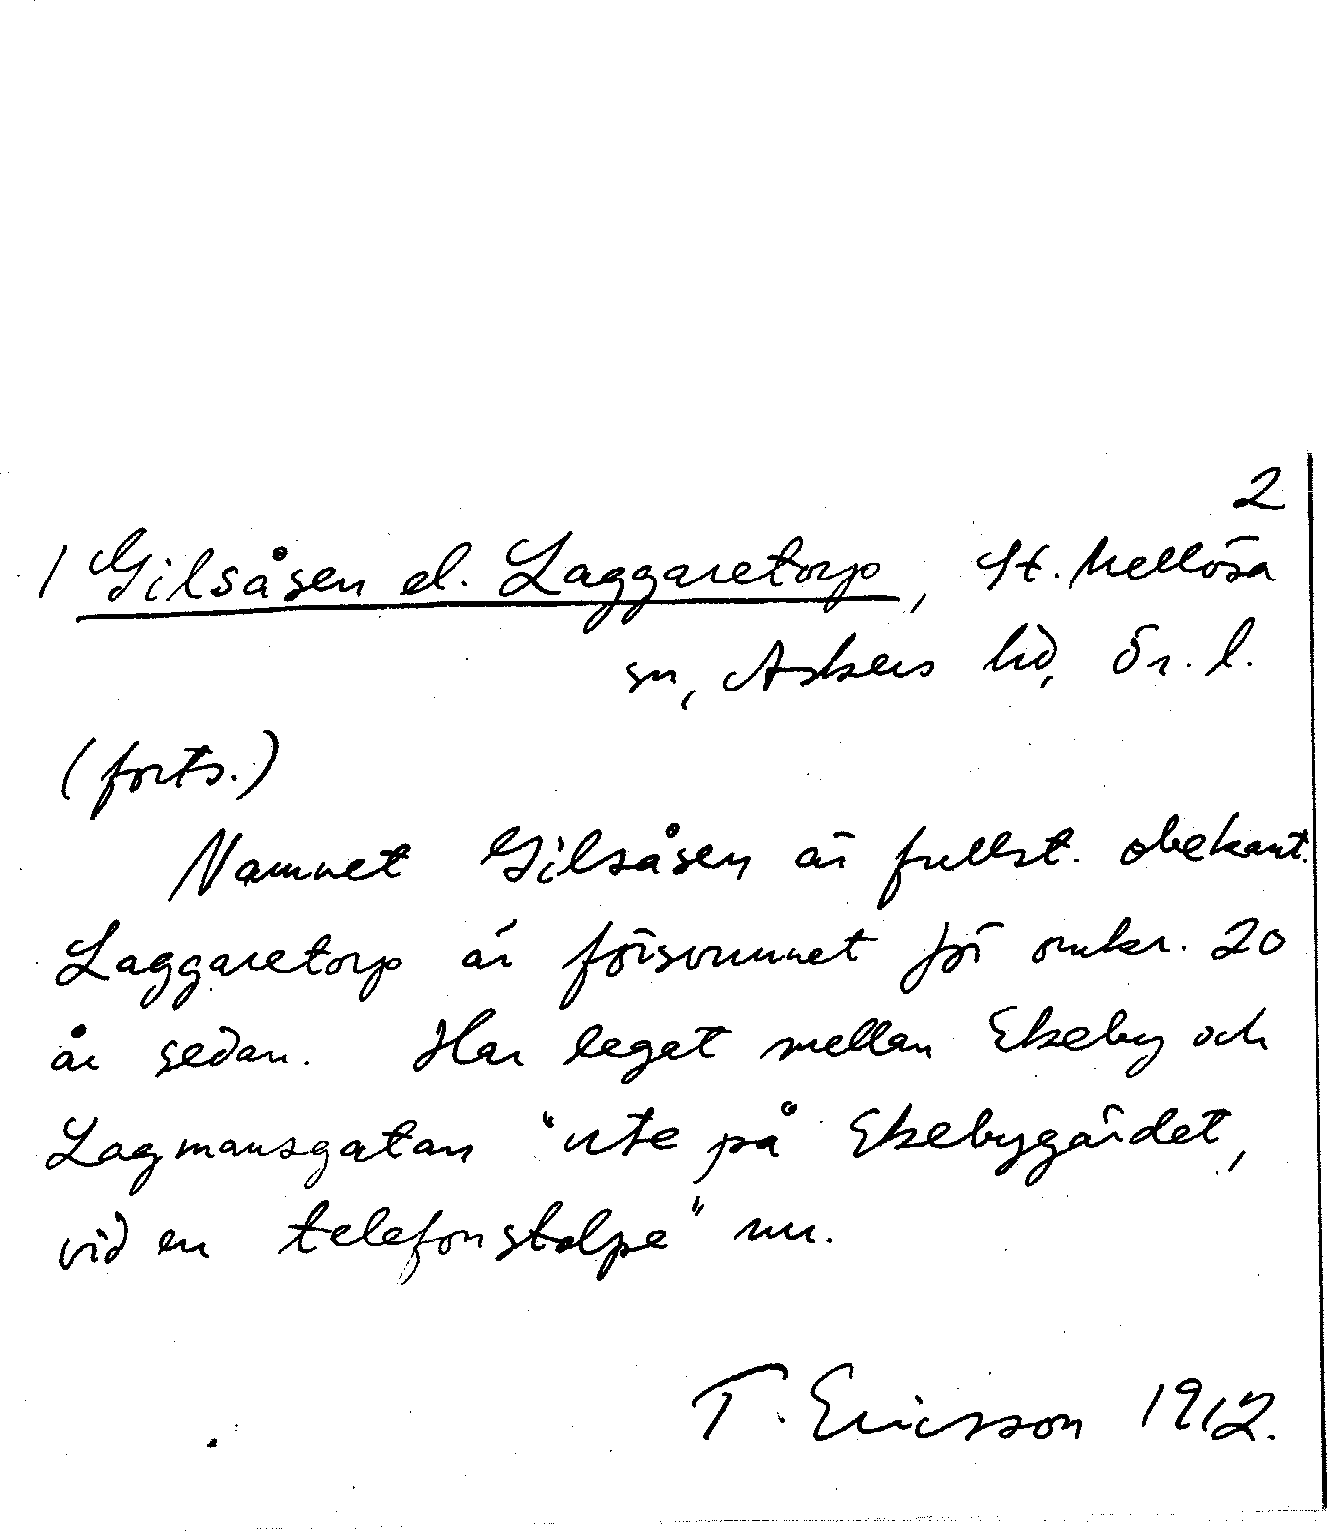 2
/ Gilsåsen el. Laggaretorp, St. Mellösa
sn, Askers hd, Ör. l.
(forts.)
Namnet Gilsåsen är fullst. obekant.
Laggaretorp är försvunnet för omkr. 20
år sedan. Har legat mellan Ekeby och
Lagmansgatan "ute på Ekebygärdet,
vid en telefonstolpe" nu.
T. Ericsson 1912.